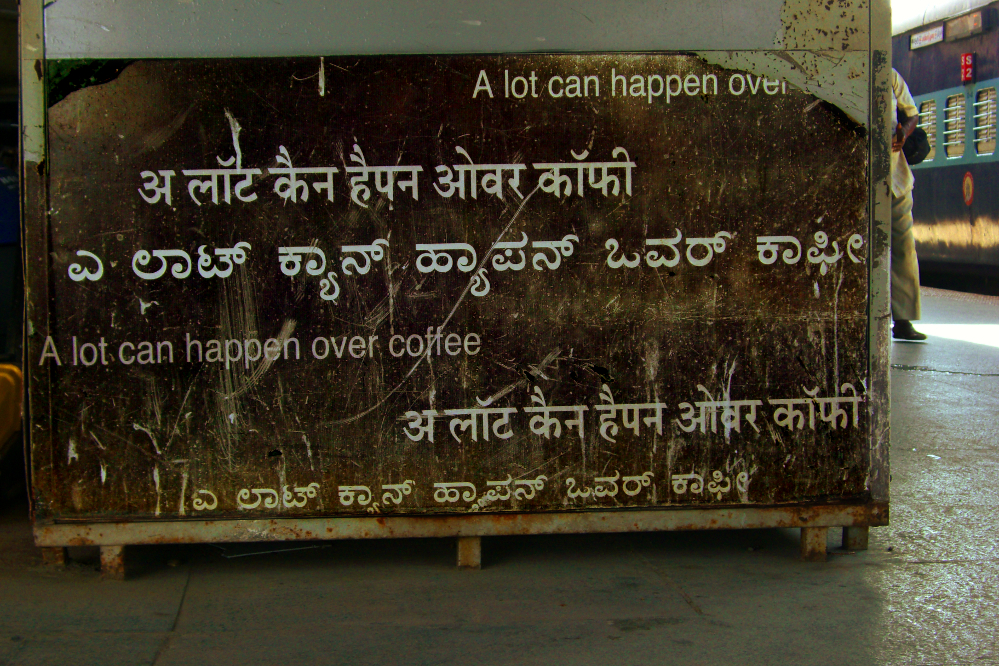 A lot can happen over
अ लॉट कैन हैपन ओवर कॉफी
ಎ ಲಾಟ್ ಕ್ಯಾನ್ ಹ್ಯಾಪನ್ ಒವರ್ ಕಾಫೀ
A lot can happen over coffee
अ लॉट कैन हैपन ओवर कॉफी
ಎ ಲಾಟ್ ಕ್ಯಾನ್ ಹ್ಯಾಪನ್ ಒವರ್ ಕಾಫೀ
S
2